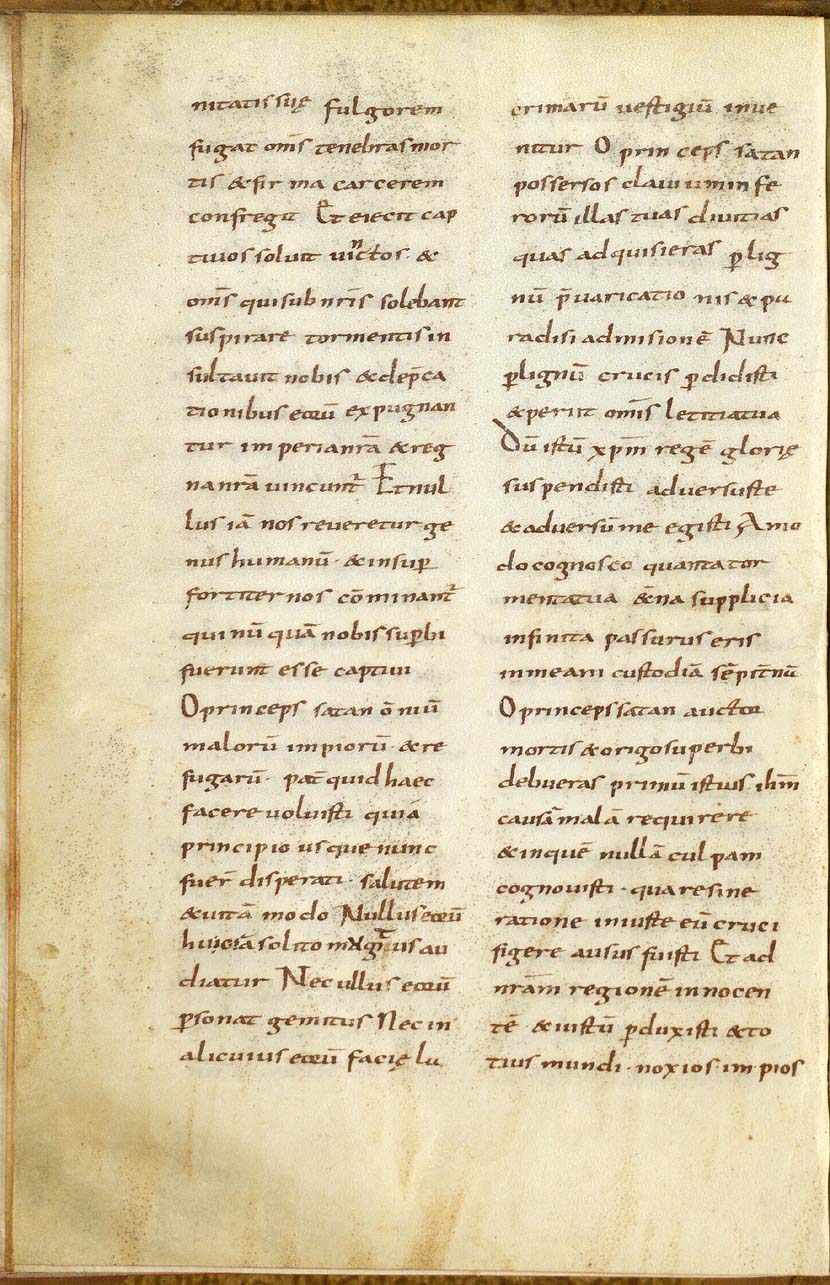 nitatis suę fulgorem
fugat om̄s tenebras mor
tis &fir ma carcerem
confregit Et eiecit cap
tivos soluit vinctos · &
om̄s qui sub nr̄is solebant
suspirare tormentis in
sultavit nobis &dep̄ca
tionibus eorū expugnan
tur imperia nr̄a &reg
na nr̄a vincunt̄ Et nul
lus iā nos reveretur ge
nus humanū · &insup̱
fortiter nos cōminant̄
qui nū quā nobis sup̱bi
fuerunt esse captivi
O princeps satan ōniū
malorū impiorū · &re
fugarū · pat̄ quid haec
facere voluisti quia
principio usque nunc
fuer̄ disperati · salutem
&vitā modo Nullus eorū
hic iā solito
diatur Nec ullus eorū
p̱sonat gemitus Nec in
alicuius eorū facię la
crimarū vestigiū inve
nitur O prin ceps satan
possersos clavium in fe
rorū illas tuas divitias
quas adquisieras p̱ lig
nū p̄varicatio nis &pa
radisi admisionē Nunc
p̱ lignū crucis p̱didisti
&periit om̄is letitia tua
Dū istū xp̄m regē glorię
suspendisti adversus te
&adversū me egisti Amo
do cognosco quanta tor
menta tua &̄na supplicia
infinita passurus eris
in meam custodiā sēpit̄nū
O princeps satan auctor
mortis &origo superbi
debueras primū istius ihm̄
causā malā requirere
&in quē nullā culpam
cognovisti · quare sine
ratione iniuste eū cruci
figere ausus fuisti Et ad
nr̄am regionē innocen
tē &iustū p̱duxisti &to
tius mundi · noxios · impios